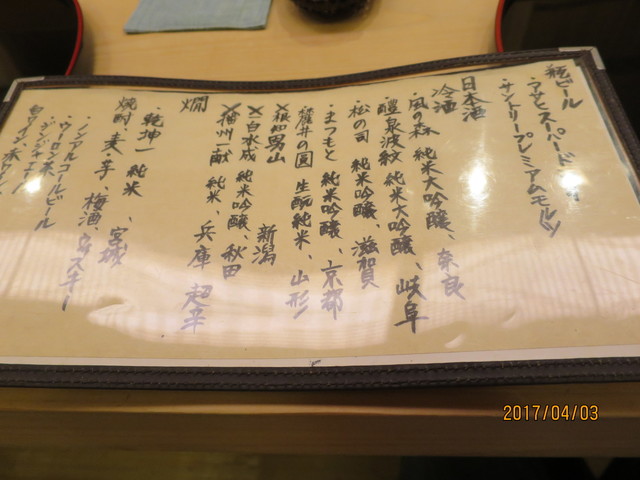 瓶ビール
・アサヒスーパード
・サントリープレミアムモルツ
日本酒
冷酒
・風の森 純米大吟醸、奈良
・醴泉波紋 純米大吟醸、岐阜
・松の司 純米吟醸 滋賀
・まつもと 純米吟醸、京都
・麓井の圓 生酛純米、山形
×根知男山 新潟
×白水成 純米吟醸、秋田
×播州一献 純米、兵庫 超辛
燗
・乾坤一 純米、宮城
焼酎、麦、芋、梅酒、ウィスキー
・ノンアルコールビール
・ウーロン茶
・ジンジャエール
2017/04/03